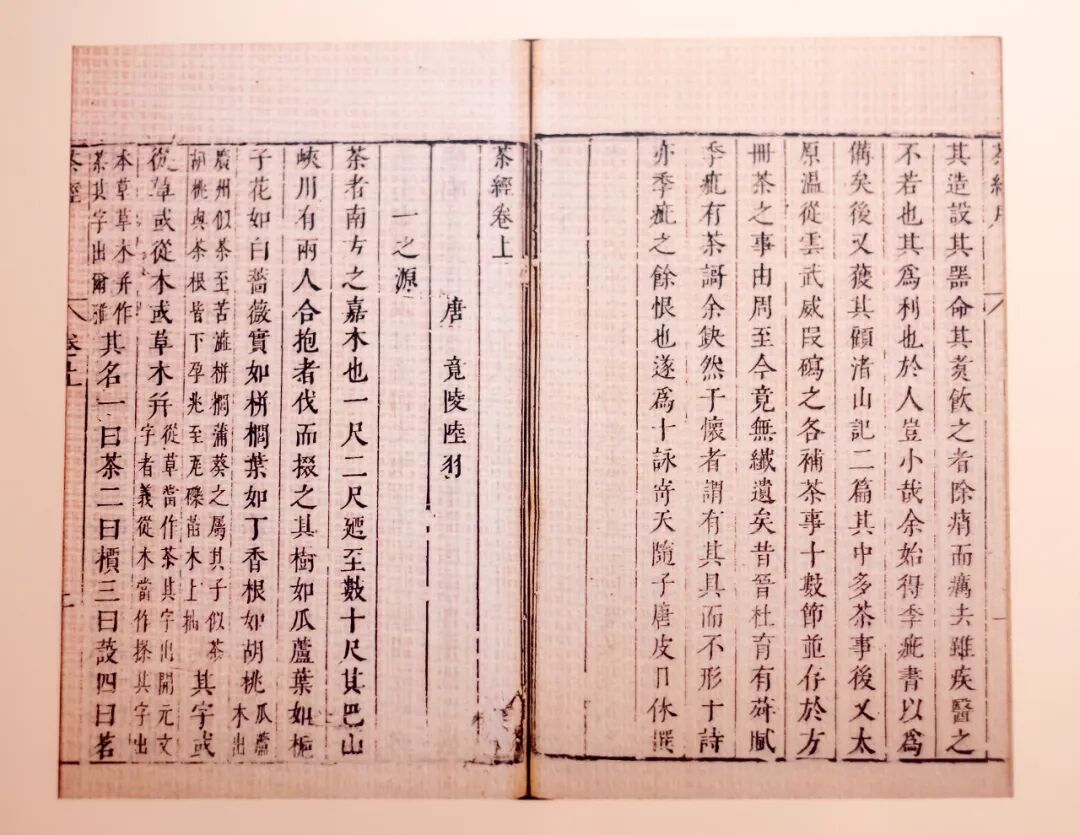 其造設其器命其煑飲之者除痟而癘去雖疾醫之
不若也其爲利也於人豈小哉余始得季疵書以爲
備矣後又獲其顧渚山記二篇其中多茶事後又太
原溫從雲武威段碣之各補茶事十數節並存於方
冊茶之事由周至今竟無纖遺矣昔晉杜育有荈賦
季疵有茶謌余缺然于懷者謂有其具而不形于詩
亦季疵之餘恨也遂爲十詠寄天隨子唐皮日休譔
茶經卷上
唐 竟陵陸羽
一之源
茶者南方之嘉木也一尺二尺廼至數十尺其巴山
峽川有兩人合抱者伐而掇之其樹如瓜蘆葉如梔
子花如白薔薇實如栟櫚葉如丁香根如胡桃瓜蘆木出
廣州似茶至苦澁栟櫚蒲葵之屬其子似茶胡桃與茶根皆下孕兆至瓦礫苗木上抽其字或
從草或從木或草木并從草當作茶其字出開元文字者義從木當作搽其字出
本草草木并作荼其字出爾雅其名一曰茶二曰檟三曰蔎四曰茗
茶經 卷上